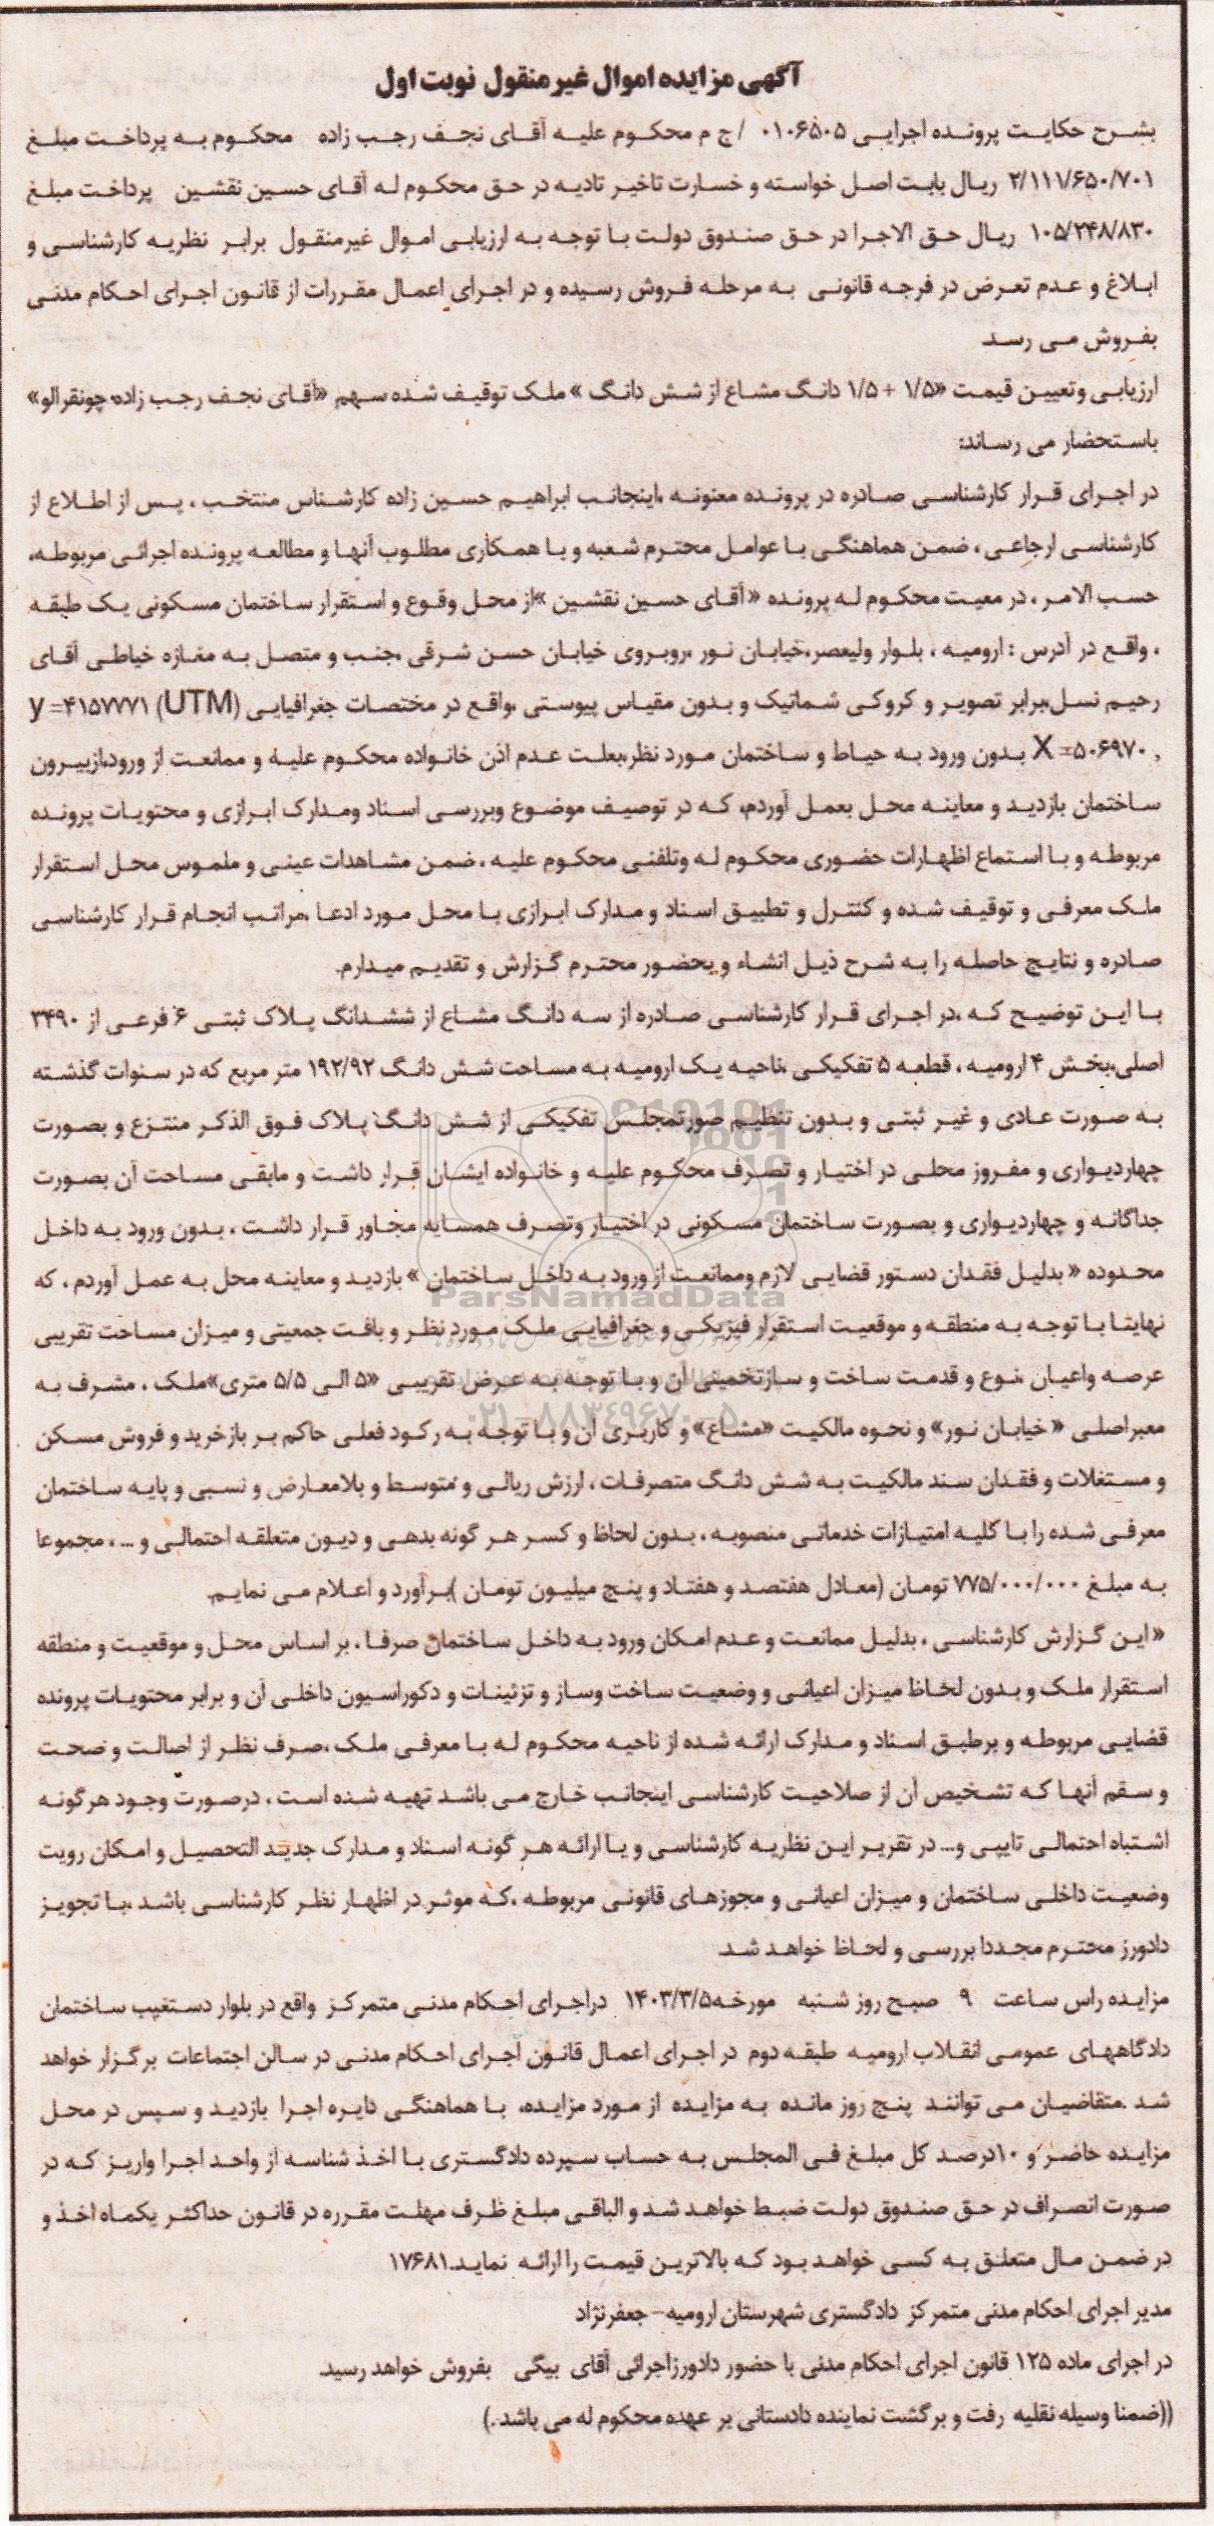 آگهی مزایده اموال غیر منقول نوبت اول
بشرح حکایت پرونده اجرایی ۰۱۰۶۵۰۵ / ج م محکوم علیه آقای نجف رجب زاده محکوم به پرداخت مبلغ
۲/۱۱۱/۶۵۰/۷۰۱ ریال بابت اصل خواسته و خسارت تاخیر تادیه در حق محکوم له آقای حسین نقشین پرداخت مبلغ
۱۰۵/۲۴۸/۸۳۰ ریال حق الاجرا در حق صندوق دولت با توجه به ارزیابی اموال غیرمنقول برابر نظریه کارشناسی و
ابلاغ و عدم تعرض در فرجه قانونی به مرحله فروش رسیده و در اجرای اعمال مقررات از قانون اجرای احکام مدنی
بفروش می رسد.
ارزیابی وتعیین قیمت «۱/۵ + ۱/۵ دانگ مشاع از شش دانگ » ملک توقیف شده سهم «آقای نجف رجب زاده چونقرالو»
باستحضار می رساند:
در اجرای قرار کارشناسی صادره در پرونده معنونه ،اینجانب ابراهیم حسین زاده کارشناس منتخب ، پس از اطلاع از
کارشناسی ارجاعی ، ضمن هماهنگی با عوامل محترم شعبه و با همکاری مطلوب آنها و مطالعه پرونده اجرائی مربوطه،
حسب الامر ، در معیت محکوم له پرونده « آقای حسین نقشین »از محل وقوع و استقرار ساختمان مسکونی یک طبقه
، واقع در آدرس : ارومیه ، بلوار ولیعصر،خیابان نور ،روبروی خیابان حسن شرقی ،جنب و متصل به مغازه خیاطی آقای
رحیم نسل،برابر تصویر و کروکی شماتیک و بدون مقیاس پیوستی ،واقع در مختصات جغرافیایی (UTM) y =۴۱۵۷۷۷۱
, X =۵۰۶۹۷۰ بدون ورود به حیاط و ساختمان مورد نظر،بعلت عدم اذن خانواده محکوم علیه و ممانعت از ورود،ازبیرون
ساختمان بازدید و معاینه محل بعمل آوردم، که در توصیف موضوع وبررسی اسناد ومدارک ابرازی و محتویات پرونده
مربوطه و با استماع اظهارات حضوری محکوم له وتلفنی محکوم علیه ، ضمن مشاهدات عینی و ملموس محل استقرار
ملک معرفی و توقیف شده و کنترل و تطبیق اسناد و مدارک ابرازی با محل مورد ادعا ،مراتب انجام قرار کارشناسی
صادره و نتایج حاصله را به شرح ذیل انشاء و بحضور محترم گزارش و تقدیم میدارم.
با این توضیح که ،در اجرای قرار کارشناسی صادره از سه دانگ مشاع از ششدانگ پلاک ثبتی ۶ فرعی از ۳۴۹۰
اصلی،بخش ۴ ارومیه ، قطعه ۵ تفکیکی ،ناحیه یک ارومیه به مساحت شش دانگ ۱۹۲/۹۲ متر مربع که در سنوات گذشته
به صورت عادی و غیر ثبتی و بدون تنظیم صورتمجلس تفکیکی از شش دانگ پلاک فوق الذکر منتزع و بصورت
چهاردیواری و مفروز محلی در اختیار و تصرف محکوم علیه و خانواده ایشان قرار داشت و مابقی مساحت آن بصورت
جداگانه و چهاردیواری و بصورت ساختمان مسکونی در اختیار وتصرف همسایه مجاور قرار داشت ، بدون ورود به داخل
محدوده « بدلیل فقدان دستور قضایی لازم وممانعت از ورود به داخل ساختمان » بازدید و معاینه محل به عمل آوردم ، که
نهایتا با توجه به منطقه و موقعیت استقرار فیزیکی و جغرافیایی ملک مورد نظر و بافت جمعیتی و میزان مساحت تقریبی
عرصه واعیان ،نوع و قدمت ساخت و سازتخمینی آن و با توجه به عرض تقریبی «۵ الی ۵/۵ متری»ملک ، مشرف به
معبراصلی « خیابان نور» و نحوه مالکیت «مشاع» و کاربری آن و با توجه به رکود فعلی حاکم بر بازخرید و فروش مسکن
و مستغلات و فقدان سند مالکیت به شش دانگ متصرفات ، ارزش ریالی و متوسط و بلامعارض و نسبی و پایه ساختمان
معرفی شده را با کلیه امتیازات خدماتی منصوبه ، بدون لحاظ و کسر هر گونه بدهی و دیون متعلقه احتمالی و ... ، مجموعا
به مبلغ ۷۷۵/۰۰۰/۰۰۰ تومان (معادل هفتصد و هفتاد و پنج میلیون تومان )برآورد و اعلام می نمایم.
« این گزارش کارشناسی ، بدلیل ممانعت و عدم امکان ورود به داخل ساختمان صرفا ، بر اساس محل و موقعیت و منطقه
استقرار ملک و بدون لحاظ میزان اعیانی و وضعیت ساخت وساز و تزئینات و دکوراسیون داخلی آن و برابر محتویات پرونده
قضایی مربوطه و برطبق اسناد و مدارک ارائه شده از ناحیه محکوم له با معرفی ملک ،صرف نظر از اصالت و صحت
و سقم آنها که تشخیص آن از صلاحیت کارشناسی اینجانب خارج می باشد تهیه شده است ، درصورت وجود هرگونه
اشتباه احتمالی تایپی و... در تقریر این نظریه کارشناسی و یا ارائه هر گونه اسناد و مدارک جدید التحصیل و امکان رویت
وضعیت داخلی ساختمان و میزان اعیانی و مجوزهای قانونی مربوطه ،که موثر در اظهار نظر کارشناسی باشد ،با تجویز
دادورز محترم مجددا بررسی و لحاظ خواهد شد.
مزایده راس ساعت ۹ صبح روز شنبه مورخه۱۴۰۳/۳/۵ دراجرای احکام مدنی متمرکز واقع در بلوار دستغیب ساختمان
دادگاههای عمومی انقلاب ارومیه طبقه دوم در اجرای اعمال قانون اجرای احکام مدنی در سالن اجتماعات برگزار خواهد
شد .متقاضیان می توانند پنج روز مانده به مزایده از مورد مزایده، با هماهنگی دایره اجرا بازدید و سپس در محل
مزایده حاضر و ۱۰درصد کل مبلغ فی المجلس به حساب سپرده دادگستری با اخذ شناسه از واحد اجرا واریز که در
صورت انصراف در حق صندوق دولت ضبط خواهد شد و الباقی مبلغ ظرف مهلت مقرره در قانون حداکثر یکماه اخذ و
در ضمن مال متعلق به کسی خواهد بود که بالاترین قیمت را ارائه نماید.۱۷۶۸۱
مدیر اجرای احکام مدنی متمرکز دادگستری شهرستان ارومیه- جعفرنژاد
در اجرای ماده ۱۲۵ قانون اجرای احکام مدنی با حضور دادورزاجرائی آقای بیگی بفروش خواهد رسید.
((ضمنا وسیله نقلیه رفت و برگشت نماینده دادستانی بر عهده محکوم له می باشد.)
ParsNamadData
۰۲۱-۸۸۳۴۹۶۷۰-۵